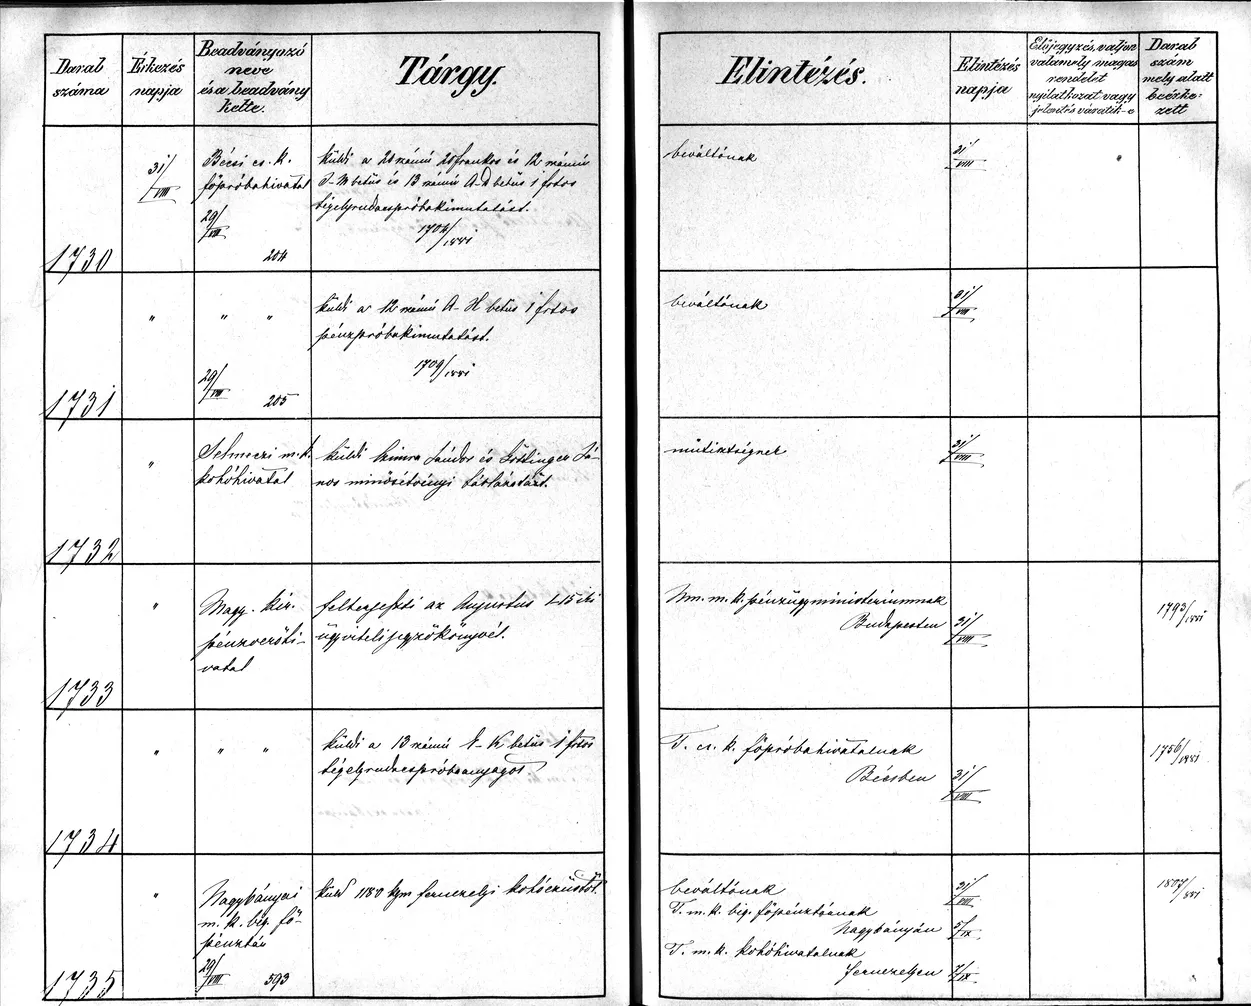 Darab
száma
Érkezés
napja
Beadványozó
neve
és a beadvány
kelte.
Tárgy.
Elintézés.
Elintézés
napja
Előjegyzés, valjon
valamely magas
rendelet
nyilatkozat vagy
jelentés váratik-e
Darab
szám
mely alatt
beérke-
zett
1730
31/VIII
Bécsi cs. k.
főpróbahivatal
29/VIII
204
küldi a 20 számú 20 frankos és 12 számú
J-M betüs és 13 számú A-D betüs 1 frtos
tégelyrudacspróbakimutatást.
1702/1881
beváltónak
31/VIII
1731
" " "
29/VIII
205
küldi a 12 számú A-H betüs 1 frtos
pénzpróbakimutatást.
1709/1881
beváltónak
31/VIII
1732
"
Selmeczi m. k.
kohóhivatal
küldi Sándor és Já-
nos minősítvényi táblázatát.
31/VIII
1733
"
Magy. kir.
pénzverőhi-
vatal
felterjeszti az Augustus 1-15 iki
ügyviteli jegyzőkönyvét.
Nm. m. k. pénzügyministeriumnak
Budapesten
31/VIII
1793/1881
1734
" " "
küldi a 13 számú E-K betüs 1 frtos
tégelyrudacspróbaanyagot
T. cs. k. főpróbahivatalnak
Bécsben
31/VIII
1756/1881
1735
"
Nagybányai
m. k. big. fő-
pénztár
29/VIII
593
küld 1180 kgm fernezelyi kohóezüstöt.
beváltónak
31/VIII
T. m. k. big. főpénztárnak
Nagybányán
5/IX
T. m. k. kohóhivatalnak
Fernezelyen
7/IX
1807/881